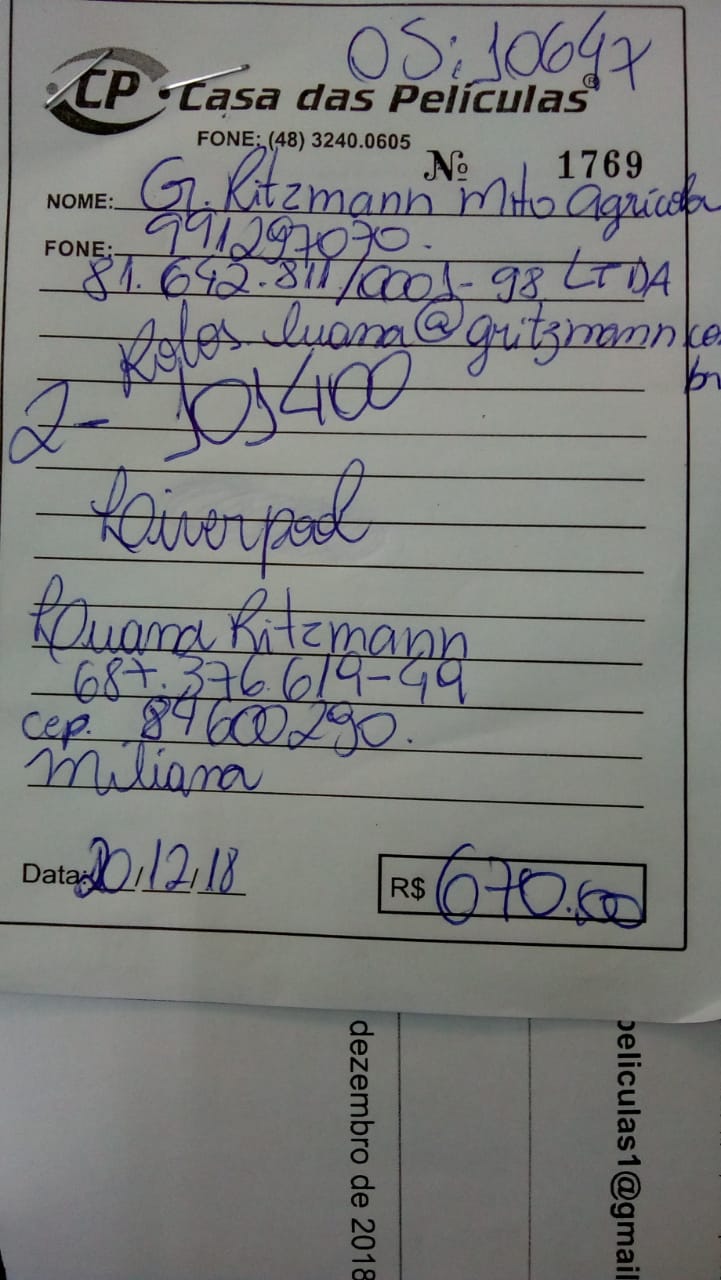 OS: 10647
CP Casa das Películas®
FONE: (48) 3240.0605
Nº 1769
NOME: G. Ritzmann Mto Agrícola
FONE: 991297070.
81.642.811/0001-98 LTDA
Rolos luana@gritzmann.co
br
2- 101400
Liverpool
Luana Ritzmann
687.376.619-49
cep. 84600290.
Miliana
Data: 20/12/18
R$ 670.00
dezembro de 2018
peliculas1@gmail